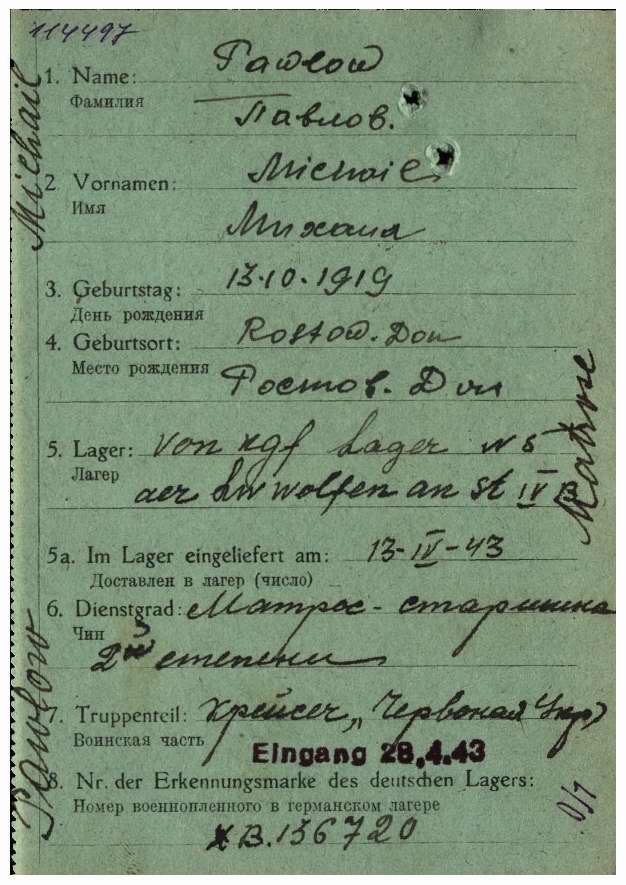 114497
1. Name: Pawlow
Фамилия
Павлов.
2. Vornamen: Michail
Имя
Михаил
3. Geburtstag: 13.10.1919
День рождения
4. Geburtsort: Rostow. Don
Место рождения
Ростов. Дон
5. Lager: von kgf Lager N 5
Лагер
der Lw wolfen an St IV B
5a. Im Lager eingeliefert am: 13-IV-43
Доставлен в лагер (число)
6. Dienstgrad: Матрос - старшина
Чин
2й степени
7. Truppenteil: Крейсер „Червоная Укр)
Воинская часть
Eingang 28.4.43
8. Nr. der Erkennungsmarke des deutschen Lagers:
Номер военнопленного в германском лагере
XB. 136720
Michail
Pawlow
Matrose